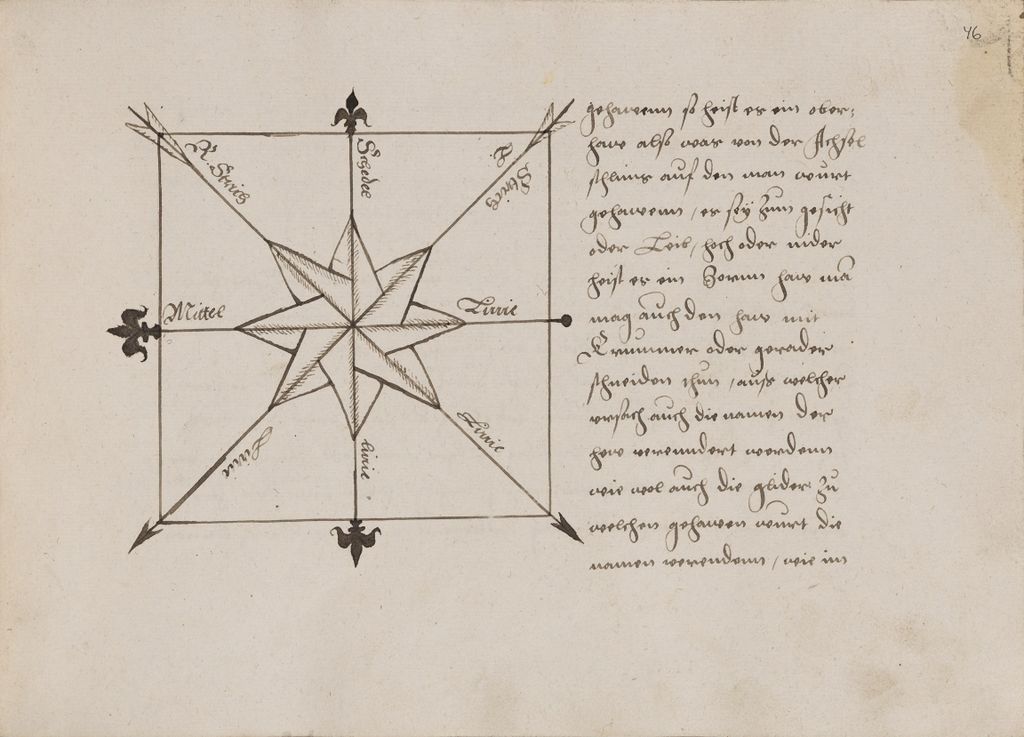 46
Schedel
R. Strich
L. Strich
Mittel
Linie
Linie
Linie
Linie
gehawenn so heist es ein ober:
haw also was von der Achsel
schlims auf den man wurt
gehawenn, es sey zum gesicht
oder Leib, hoch oder nider
heist es ein Zornn haw mā
mag auch den haw mit
Krummer oder gerader
schneiden thun, auss welcher
vrsach auch die namen der
hew verenndert werdenn
wie wol auch die glider zu
welchen gehawen wurt die
namen verendenn, wie im